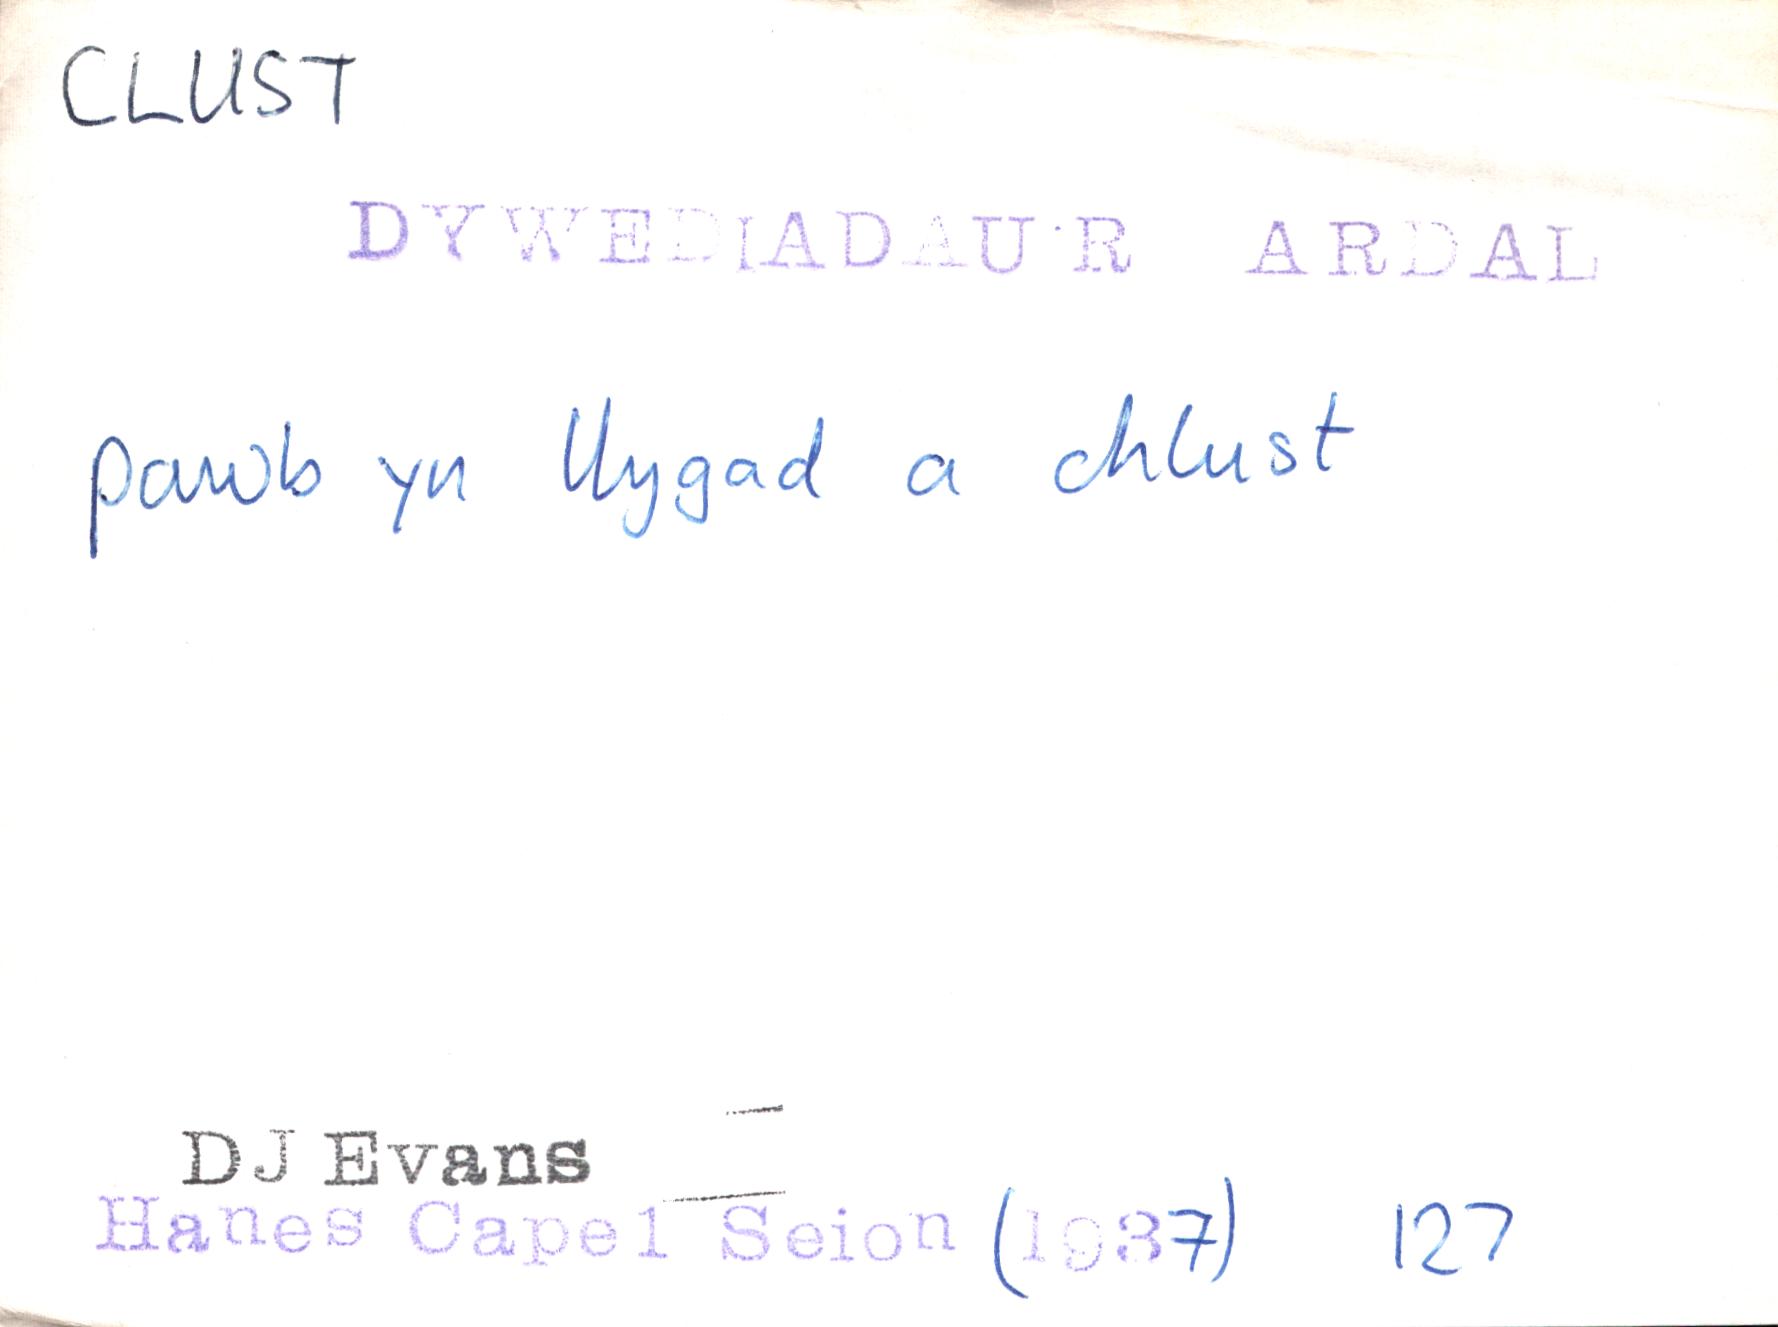 CLUST
DYWEDIADAU'R ARDAL
pawb yn llygad a chlust
DJ Evans
Hanes Capel Seion (1937) 127